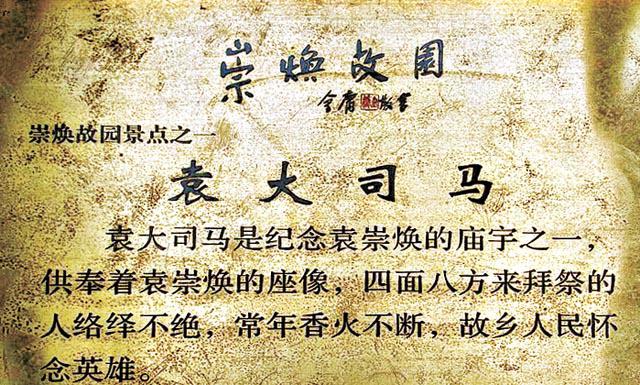 崇焕故园
金庸
崇焕故园景点之一
袁大司马
袁大司马是纪念袁崇焕的庙宇之一，
供奉着袁崇焕的座像，四面八方来拜祭的
人络绎不绝，常年香火不断，故乡人民怀
念英雄。